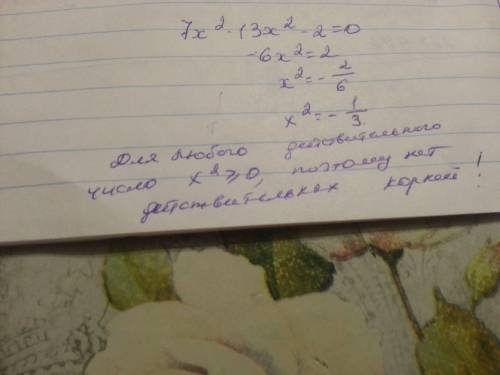 7x² - 13x² - 2 = 0
-6x² = 2
x² = - 2/6
x² = - 1/3
Для любого действительного
число x² ⩾ 0, поэтому нет
действительнах корней!